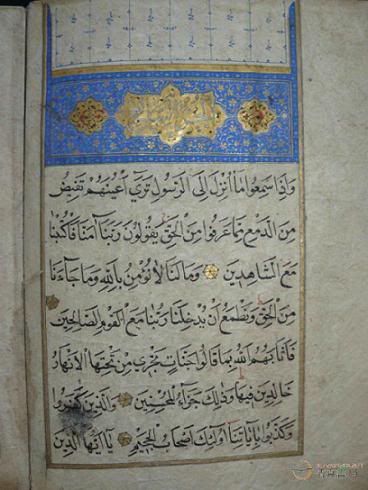 وَاِذَا سَمِعُوا مَا اُنْزِلَ اِلَى الرَّسُولِ تَرٰى اَعْيُنَهُمْ تَفِيضُ
مِنَ الدَّمْعِ مِمَّا عَرَفُوا مِنَ الْحَقِّ يَقُولُونَ رَبَّنَا آمَنَّا فَاكْتُبْنَا
مَعَ الشَّاهِدِينَ وَمَا لَنَا لَا نُؤْمِنُ بِاللّٰهِ وَمَا جَاءَنَا
مِنَ الْحَقِّ وَنَطْمَعُ اَنْ يُدْخِلَنَا رَبُّنَا مَعَ الْقَوْمِ الصَّالِحِينَ
فَاَثَابَهُمُ اللّٰهُ بِمَا قَالُوا جَنَّاتٍ تَجْرِي مِنْ تَحْتِهَا الْاَنْهَارُ
خَالِدِينَ فِيهَا وَذٰلِكَ جَزَاءُ الْمُحْسِنِينَ وَالَّذِينَ كَفَرُوا
وَكَذَّبُوا بِآيَاتِنَا اُولٰئِكَ اَصْحَابُ الْجَحِيمِ يَا اَيُّهَا الَّذِينَ